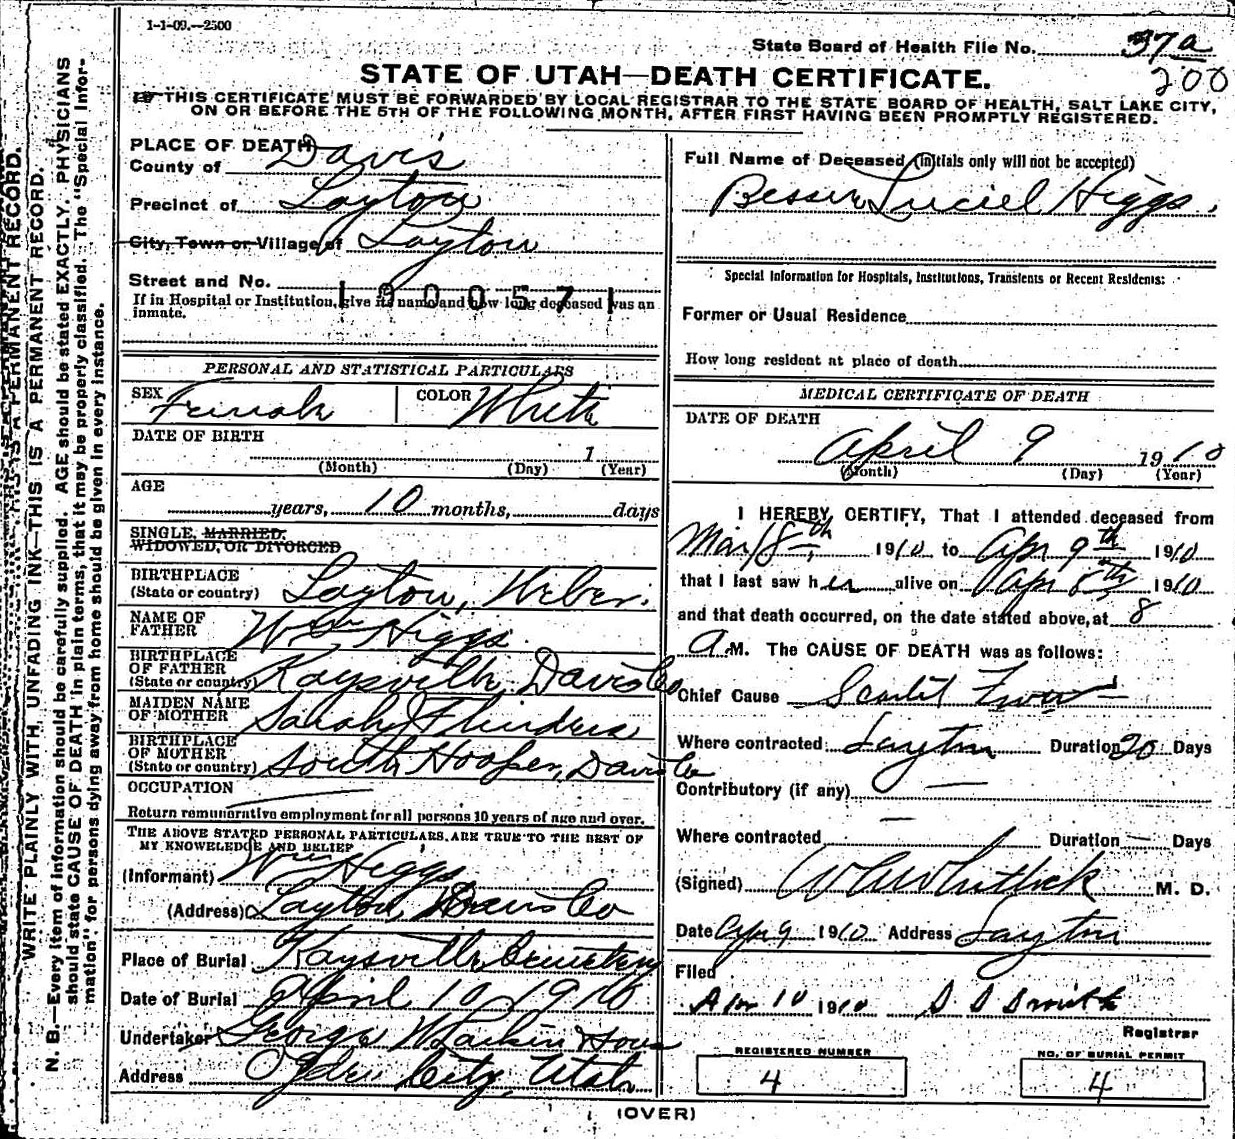 1-1-09.—2500
State Board of Health File No. 37a
200
STATE OF UTAH—DEATH CERTIFICATE.
THIS CERTIFICATE MUST BE FORWARDED BY LOCAL REGISTRAR TO THE STATE BOARD OF HEALTH, SALT LAKE CITY,
ON OR BEFORE THE 5TH OF THE FOLLOWING MONTH, AFTER FIRST HAVING BEEN PROMPTLY REGISTERED.
WRITE PLAINLY WITH UNFADING INK—THIS IS A PERMANENT RECORD.
N. B.—Every item of information should be carefully supplied. AGE should be stated EXACTLY. PHYSICIANS
should state CAUSE OF DEATH in plain terms, that it may be properly classified. The "Special Infor-
mation" for persons dying away from home should be given in every instance.
PLACE OF DEATH
County of Davis
Precinct of Layton
City, Town or Village of Layton
Street and No.
1900571
If in Hospital or Institution, give its name and how long deceased was an
inmate.
PERSONAL AND STATISTICAL PARTICULARS
SEX Female COLOR White
DATE OF BIRTH
1
(Month) (Day) (Year)
AGE
years, 10 months, days
SINGLE, MARRIED,
WIDOWED, OR DIVORCED
BIRTHPLACE
(State or country) Layton, Weber.
NAME OF
FATHER Wm Higgs
BIRTHPLACE
OF FATHER
(State or country) Kaysville, Davis Co
MAIDEN NAME
OF MOTHER Sarah Flinders
BIRTHPLACE
OF MOTHER
(State or country) South Hooper, Davis Co
OCCUPATION
Return remunerative employment for all persons 10 years of age and over.
THE ABOVE STATED PERSONAL PARTICULARS ARE TRUE TO THE BEST OF
MY KNOWELEDGE AND BELIEF
(Informant) Wm Higgs
(Address) Layton, Davis Co
Place of Burial Kaysville Cemetery
Date of Burial April 10, 1910
Undertaker George W Larkin & Sons
Address Ogden City, Utah
Full Name of Deceased (initials only will not be accepted)
Luciel Higgs.
Special Information for Hospitals, Institutions, Transients or Recent Residents:
Former or Usual Residence
How long resident at place of death
MEDICAL CERTIFICATE OF DEATH
DATE OF DEATH
April 9 1910
(Month) (Day) (Year)
I HEREBY CERTIFY, That I attended deceased from
Mar 18th 1910 to Apr 9th 1910
that I last saw her alive on Apr 8th 1910
and that death occurred, on the date stated above, at 8
A M. The CAUSE OF DEATH was as follows:
Chief Cause Scarlet Fever
Where contracted Layton Duration 20 Days
Contributory (if any) —
Where contracted — Duration — Days
(Signed) Whitlock M. D.
Date Apr 9 1910 Address Layton
Filed
Apr 10 1910 Smith
Registrar
REGISTERED NUMBER
4
NO. OF BURIAL PERMIT
4
(OVER)